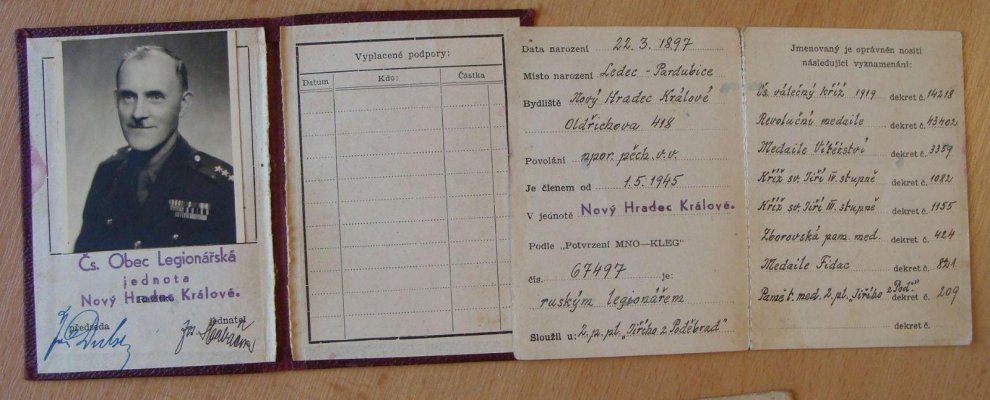 Čs. Obec Legionářská
jednota
Nový Hradec Králové.
předseda
jednatel
Vyplacené podpory:
Datum Kdo: Částka
Data narození 22. 3. 1897
Místo narození Ledec - Pardubice
Bydliště Nový Hradec Králové
Oldřichova 418
Povolání npor. pěch. v. v.
Je členem od 1. 5. 1945
V jednotě Nový Hradec Králové.
Podle „Potvrzení MNO—KLEG"
čís. 67497 je:
ruským legionářem
Sloužil u: 2. p. pl. „Jiřího z Poděbrad"
Jmenovaný je oprávněn nositi
následující vyznamenání:
Čs. válečný kříž 1919 dekret č. 14218
Revoluční medaile dekret č. 43402
Medaile Vítězství dekret č. 3359
Kříž sv. Jiří IV. stupně dekret č. 1082
Kříž sv. Jiří III. stupně dekret č. 1155
Zborovská pam. med. dekret č. 424
Medaile Fidac dekret č. 821
Pamět. med. 2. pl. „Jiřího z Poď." dekret č. 209
dekret č.